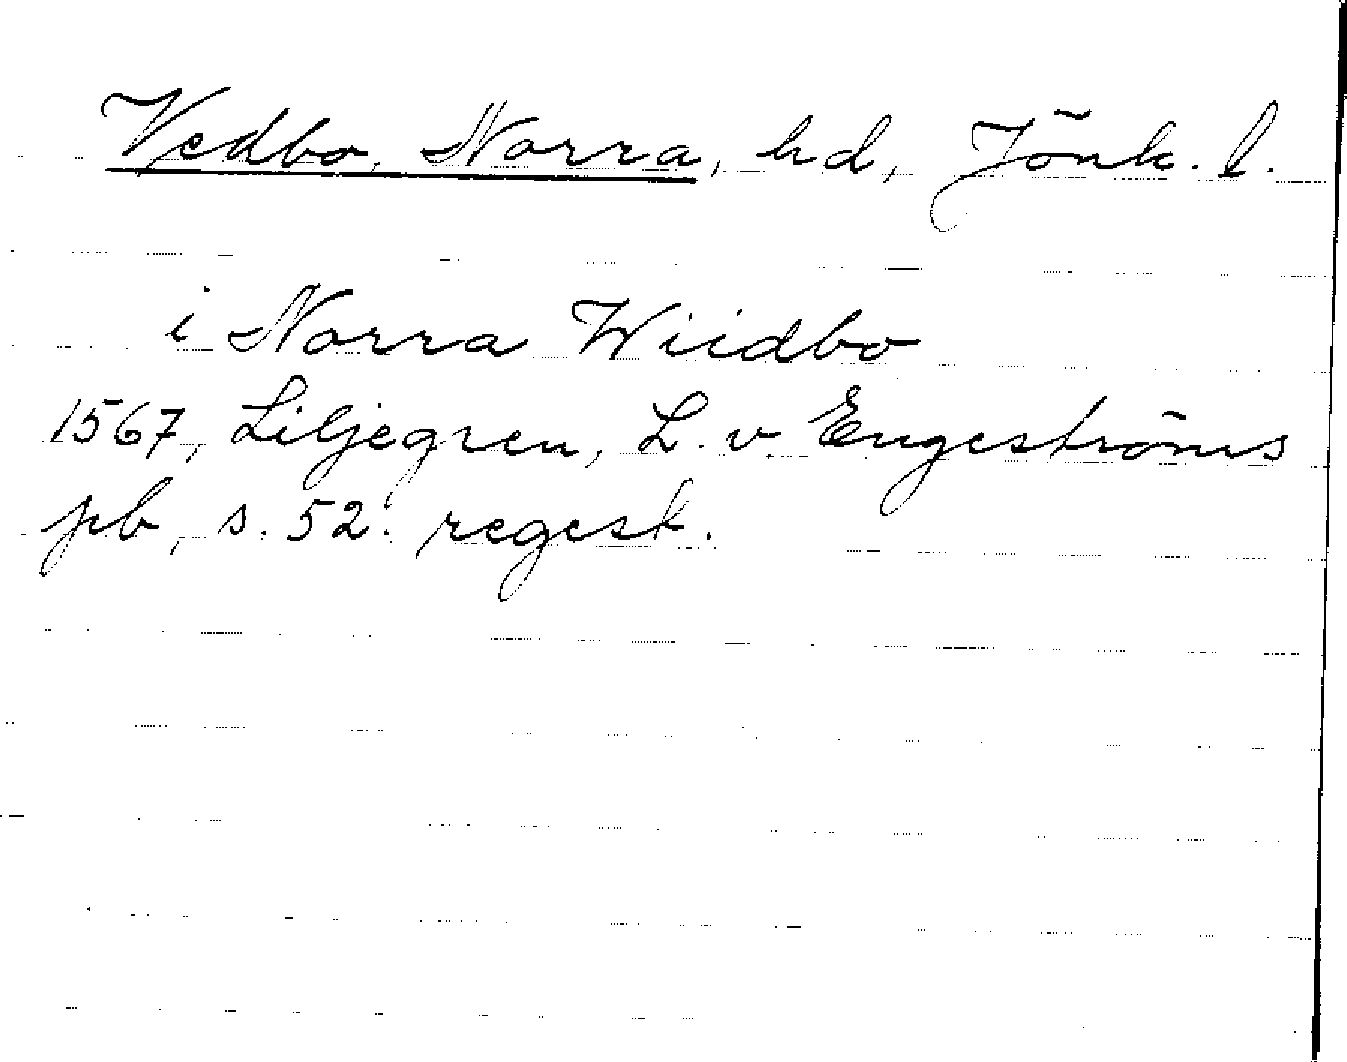 Vedbo, Norra, hd, Jönk. l.
i Norra Wiidbo
1567, Liljegren, L. v. Engeströms
pb, s. 52. regest.